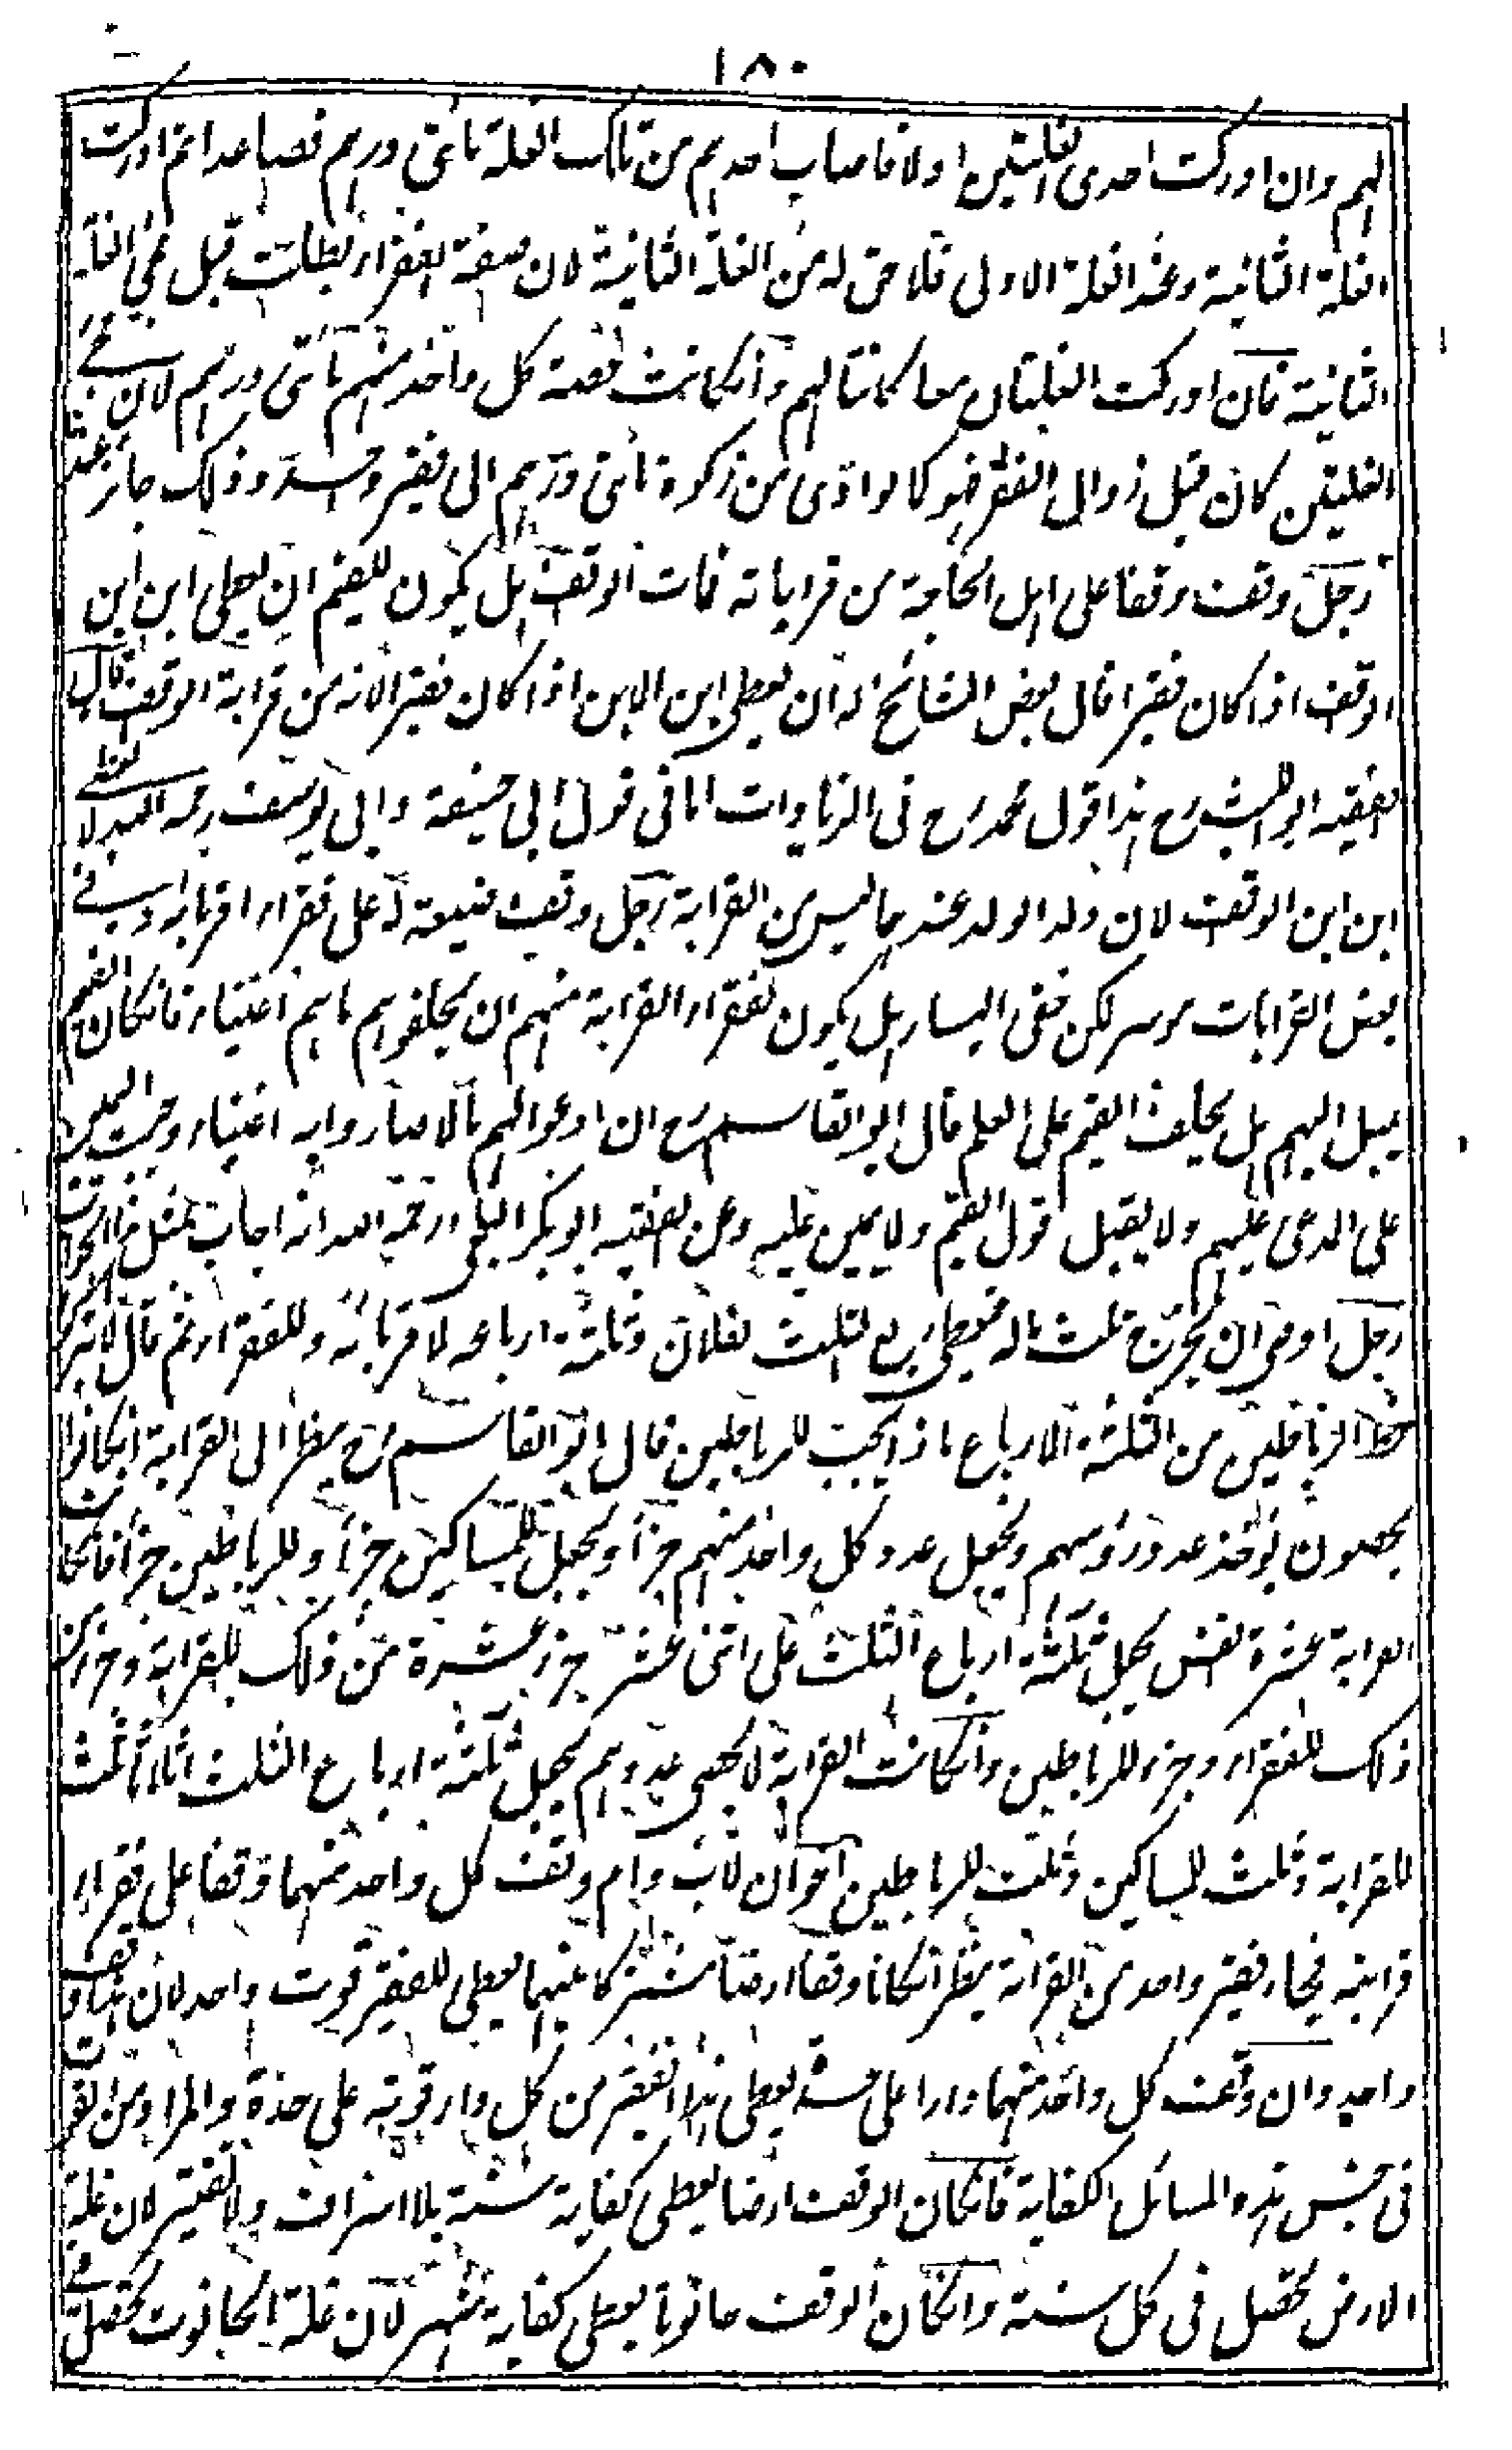 ١٨٠
لهم وان ادركت احدى الغلتين اولا فاصاب احدهم من تلك الغلة مائتى درهم فصاعدا ثم ادركت
الغلة الثانية وعنده الغلة الاولى فلا حق له من الغلة الثانية لان صفة الفقراء بطلت قبل مجئ الغلة
الثانية فان ادركت الغلتان معا كانتا لهم وانكانت حصة كل واحد منهم مائتى درهم لان مجئ
الغلتين كان قبل زوال الفقر فهو كما لو ادى من زكوة مائتى درهم الى فقير واحد وذلك جائز عندنا
رجل وقف وقفا على اهل الحاجة من قراباته فمات الوقف هل يكون للقيم ان يعطى ابن ابن
الوقف اذا كان فقيرا قال بعض المشائخ له ان يعطى ابن الابن اذا كان فقيرا لانه من قرابة الوقف قال
الفقيه ابو الليث رح هذا قول محمد رح فى الزيادات اما فى قول ابى حنيفة وابى يوسف رحمه الله لا يعطى
ابن ابن الوقف لان ولد الولد عندهما ليس من القرابة رجل وقف ضيعة له على فقراء اقربائه وفى
بعض القرابات موسر لكن خفى اليسار هل يكون لفقراء القرابة منهم ان يحلفوهم ما هم اغنياء فانكان القيم
يميل اليهم هل يحلف القيم على العلم قال ابو القاسم رح ان ادعوا لهم مالا صاروا به اغنياء وجب اليمين
على المدعى عليهم ولا يقبل قول القيم ولا يمين عليه وعن الفقيه ابو بكر البلخى رحمه الله انه اجاب بمثل هذا الجواب
رجل اوصى ان يخرج ثلث ماله فيعطى ربع الثلث لفلان وثلثة ارباعه لاقربائه وللفقراء ثم قال لا تتركوا
حظ الرباطين من الثلثة الارباع ماذا يجب للرباطين قال ابو القاسم رح ينظر الى القرابة انكانوا
يحصون يؤخذ عدد رؤسهم ويجعل عدد كل واحد منهم جزأ ويجعل للمساكين جزأ وللرباطين جزأ فانكانت
القرابة عشرة انفس يجعل ثلثة ارباع الثلث على اثنى عشر جزء عشرة من ذلك للقرابة وجزء من
ذلك للفقراء وجزء للرباطين وانكانت القرابة لا يحصى عددهم يجعل ثلثة ارباع الثلث اثلاثا ثلث
للقرابة وثلث للمساكين وثلث للرباطين اخوان لاب وام وقف كل واحد منهما وقفا على فقراء
قرابته فجاء فقير واحد من القرابة ينظر انكانا وقفا ارضا مشتركا بينهما يعطى للفقير قوت واحد لان هذا وقف
واحد وان وقف كل واحد منهما دارا على حدة يعطى هذا الفقير من كل دار قوته على حدة والمراد من القوت
فى جنس هذه المسائل الكفاية فانكان الوقف ارضا يعطى كفاية سنة بلا اسراف ولا تقتير لان غلة
الارض تحصل فى كل سنة وانكان الوقف حانوتا يعطى كفاية شهر لان غلة الحانوت تحصل فى